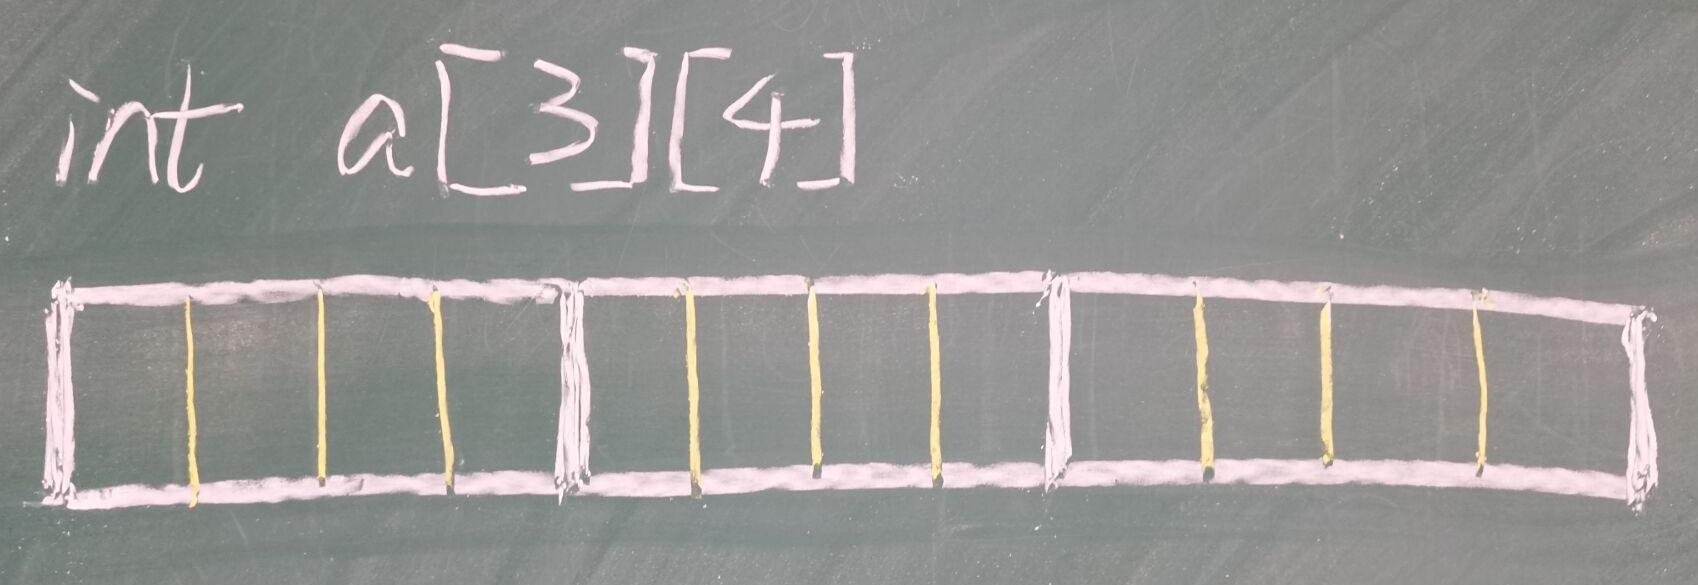 int a[3][4]